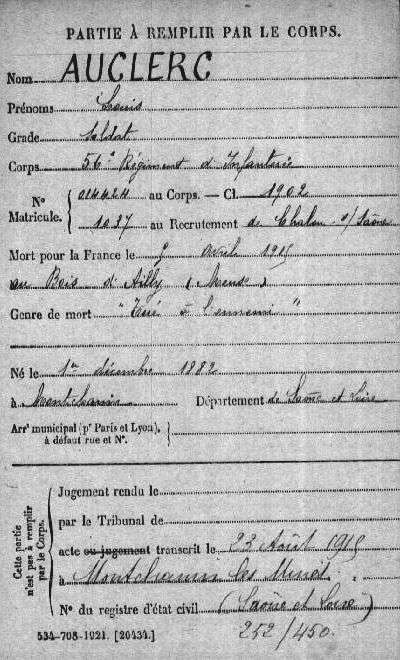 PARTIE À REMPLIR PAR LE CORPS.
Nom AUCLERC
Prénoms Louis
Grade Soldat
Corps 56e Régiment d'Infanterie
N° Matricule. 014424 au Corps. — Cl. 1902
1037 au Recrutement de Chalon s/Saône
Mort pour la France le avril 1915
au Bois d'Ailly (Meuse)
Genre de mort "Tué à l'ennemi"
Né le 1er décembre 1882
à Montchanin Département de Saône et Loire
Arrt municipal (pr Paris et Lyon), à défaut rue et N°.
Cette partie n'est pas à remplir par le Corps.
Jugement rendu le
par le Tribunal de
acte ou jugement transcrit le 23 Août 1915
à Montchanin les Mines
N° du registre d'état civil (Saône et Loire)
252/450.
534-708-1921. [20434.]